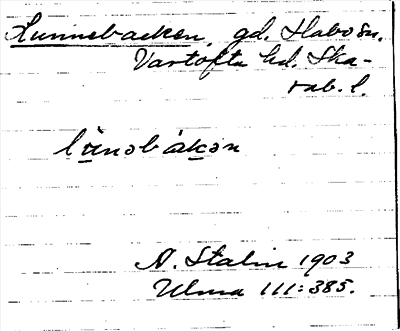 Lunnebacken, gd. Habo sn.
Vartofta hd. Ska-
rab. l.
lunəbakən
A. Stalin 1903
Ulma 111:385.